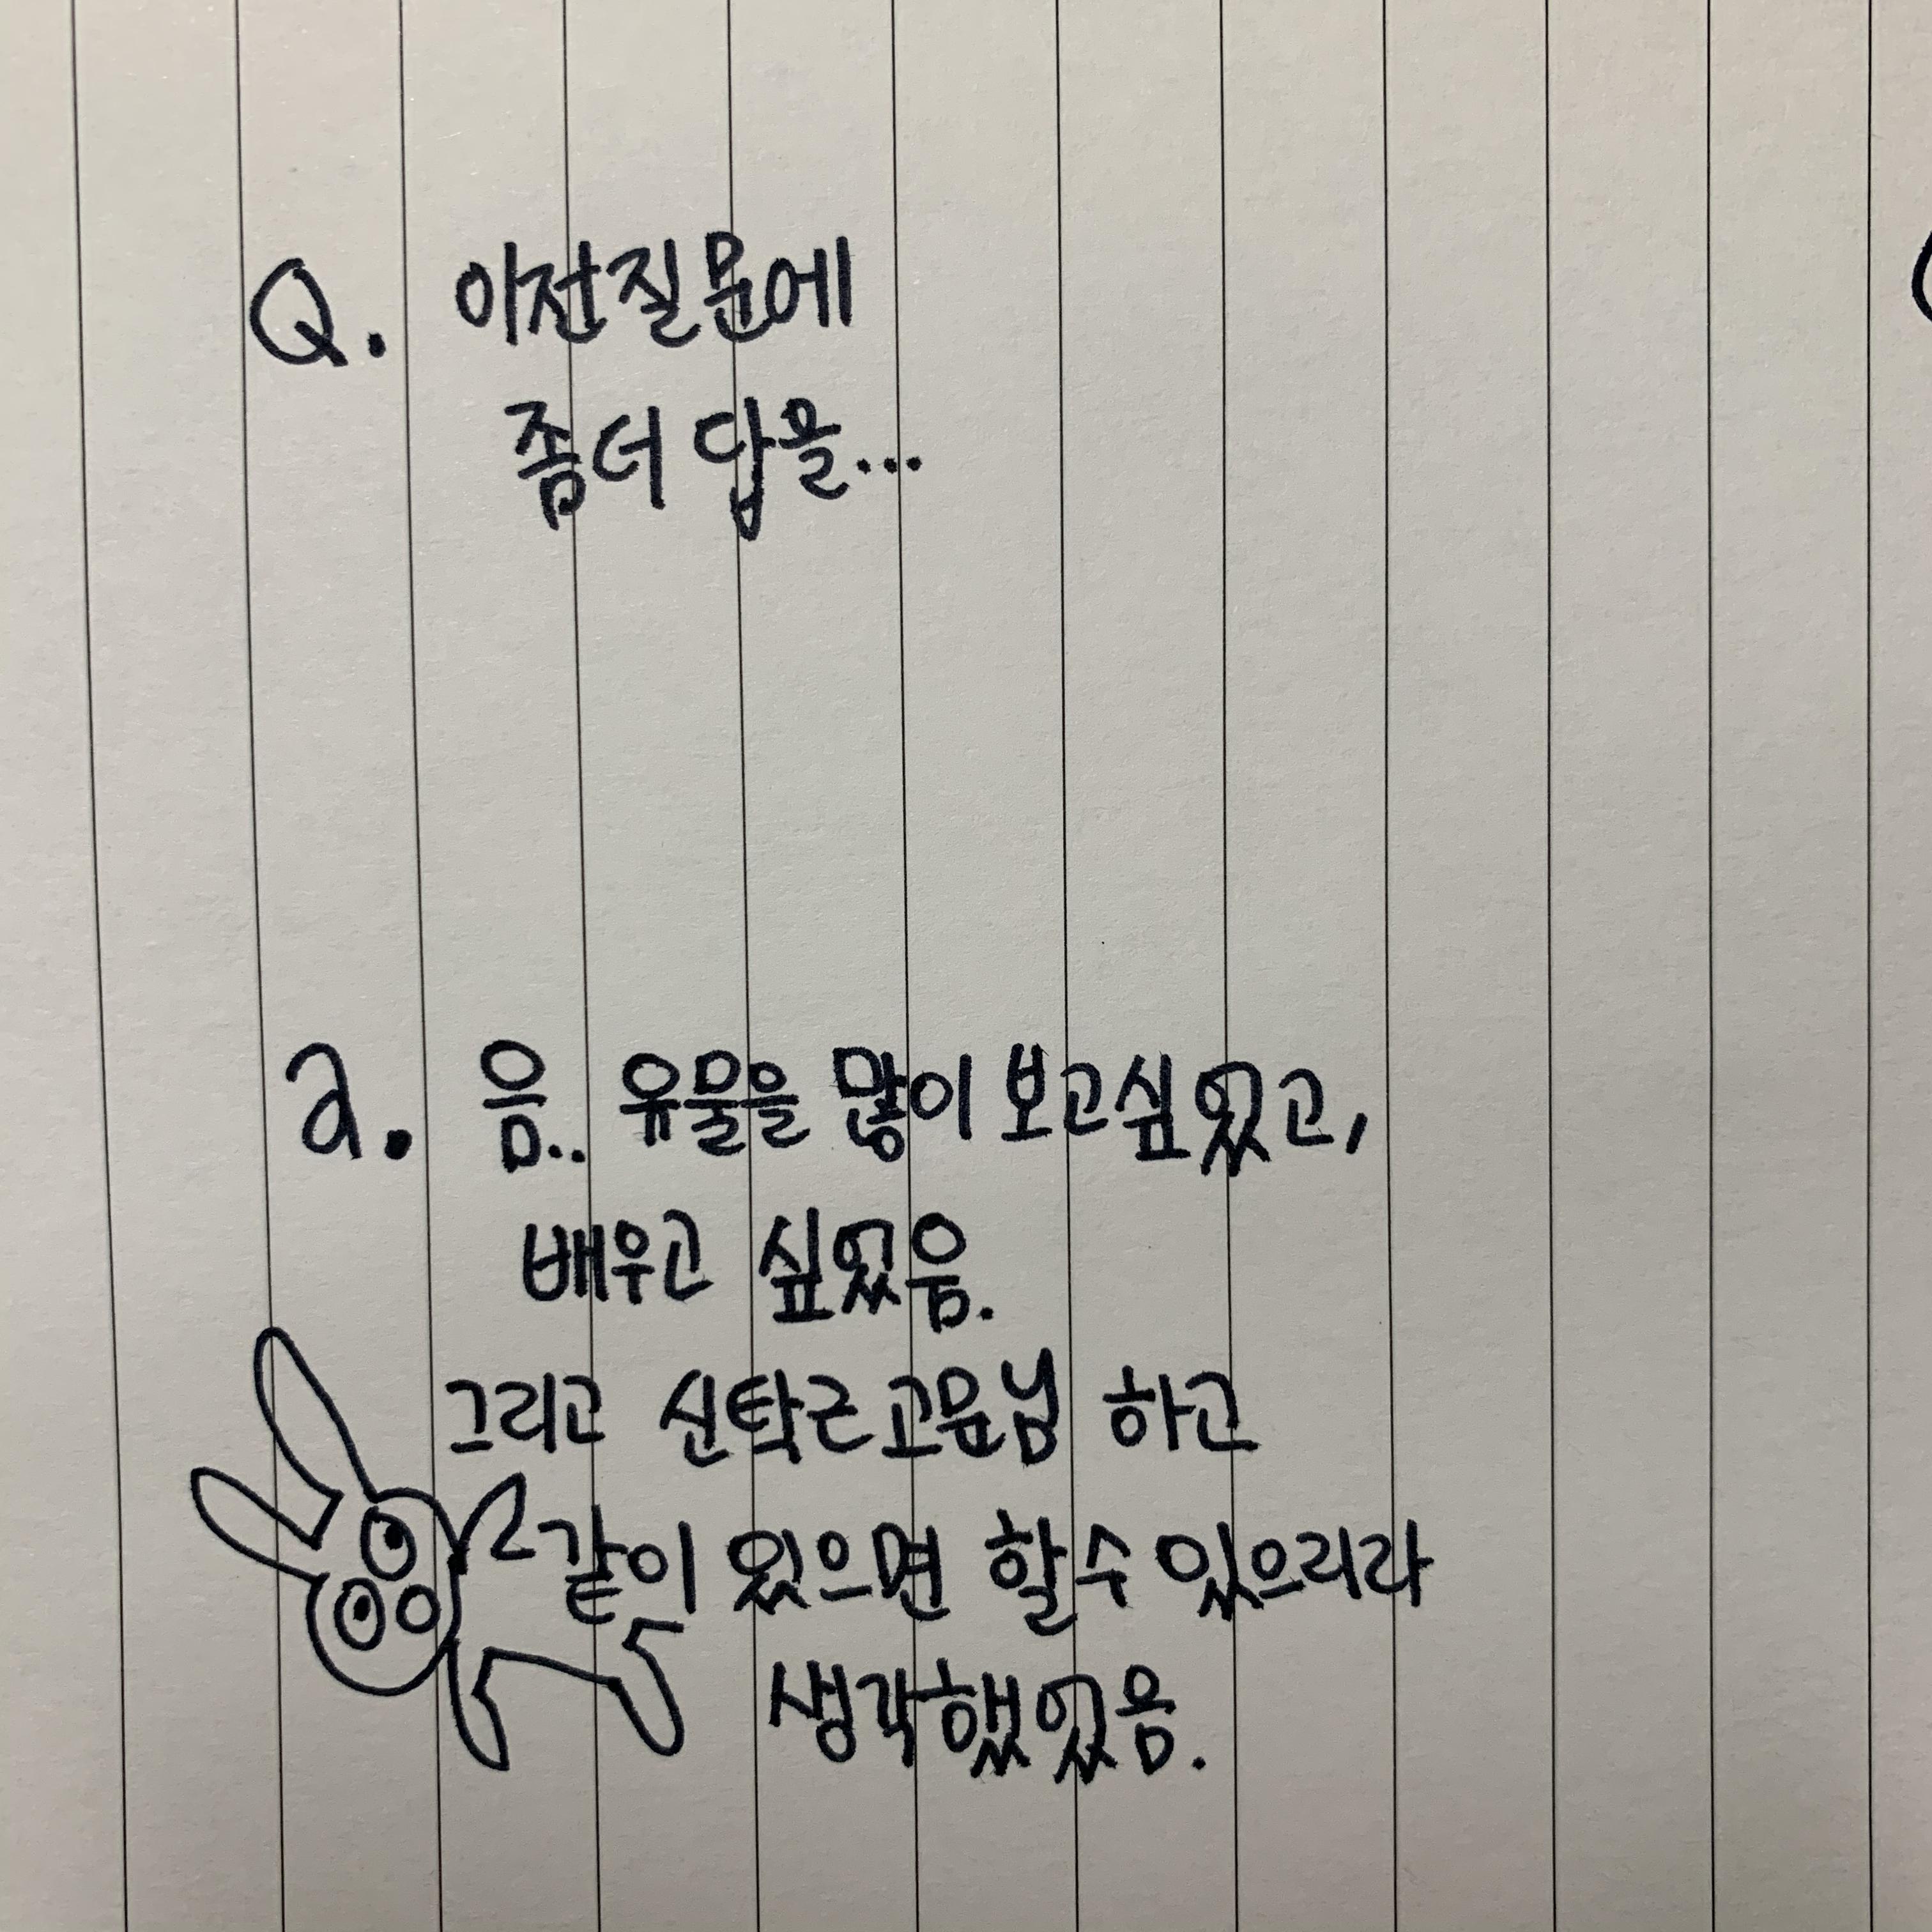 Q. 이전질문에
좀더 답을...
a. 음.. 유물을 많이 보고싶었고,
배우고 싶었음.
그리고 신탁근고문님 하고
같이 있으면 할수있으리라
생각했었음.